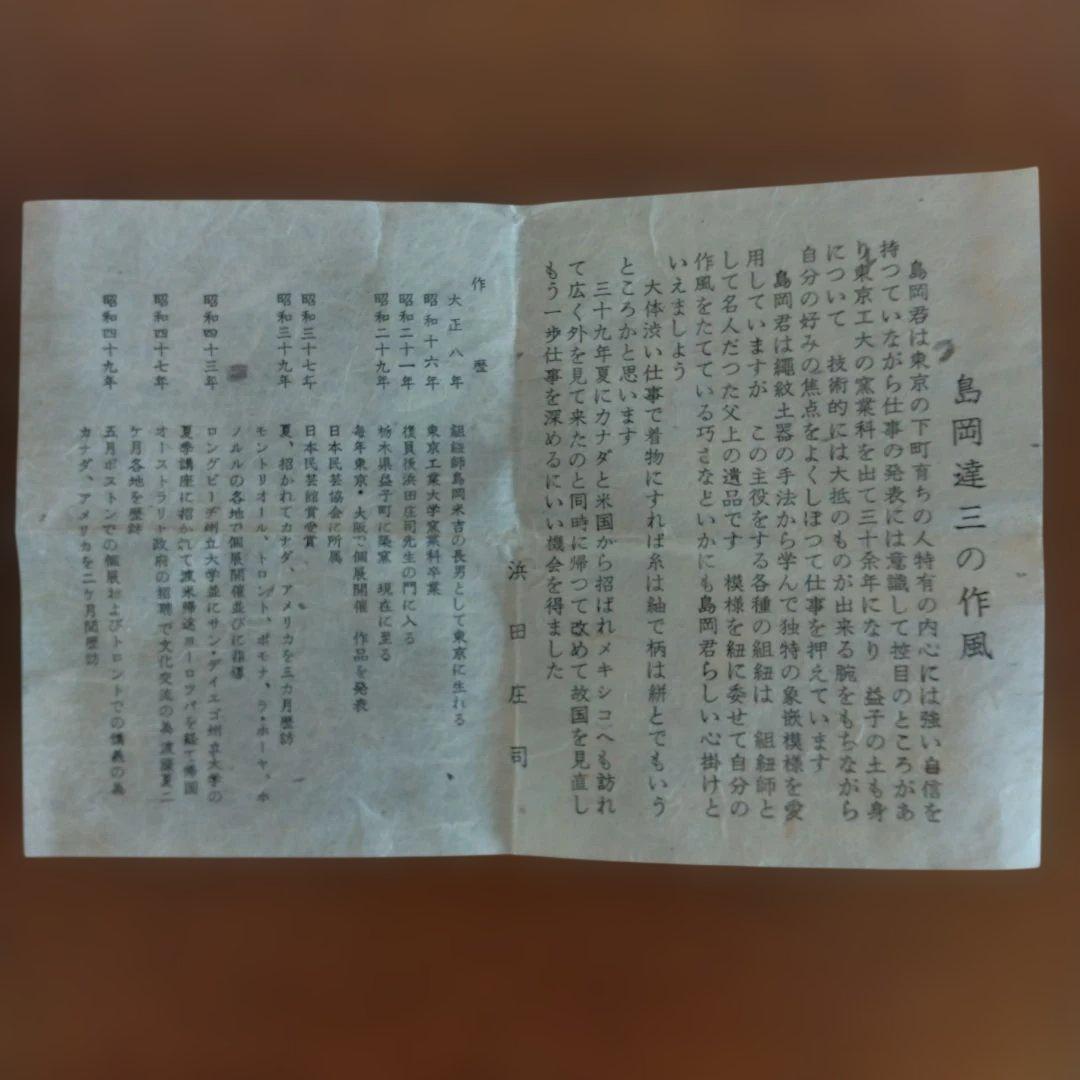 島岡達三の作風
島岡君は東京の下町育ちの人特有の内心には強い自信を
持つていながら仕事の発表には意識して控目のところがあ
り東京工大の窯業科を出て三十余年になり　益子の土も身
について　技術的には大抵のものが出来る腕をもちながら
自分の好みの焦点をよくしぼつて仕事を押えています
島岡君は縄紋土器の手法から学んで独特の象嵌模様を愛
用していますが　この主役をする各種の組紐は　組紐師と
して名人だつた父上の遺品です　模様を紐に委せて自分の
作風をたてている巧さなどいかにも島岡君らしい心掛けと
いえましよう
大体渋い仕事で着物にすれば糸は紬で柄は絣とでもいう
ところかと思います
三十九年夏にカナダと米国から招ばれメキシコへも訪れ
て広く外を見て来たのと同時に帰つて改めて故国を見直し
もう一歩仕事を深めるにいい機会を得ました
浜田庄司
作歴
大正八年　組紐師島岡米吉の長男として東京に生れる
昭和十六年　東京工業大学窯業科卒業
昭和二十一年　復員後浜田庄司先生の門に入る
昭和二十九年　栃木県益子町に築窯　現在に至る
毎年東京・大阪で個展開催　作品を発表
日本民芸協会に所属
昭和三十七年　日本民芸館賞受賞
昭和三十九年　夏、招かれてカナダ、アメリカを三カ月歴訪
モントリオール、トロント、ポモナ、ラ・ホーヤ、ホ
ノルルの各地で個展開催並びに指導
昭和四十三年　ロングビーチ州立大学並にサン・ディエゴ州立大学の
夏季講座に招かれて渡米帰途ヨーロッパを経て帰国
昭和四十七年　オーストラリヤ政府の招聘で文化交流の為渡豪夏二
ケ月各地を歴訪
昭和四十九年　五月ボストンでの個展およびトロントでの講義の為
カナダ、アメリカを二ケ月間歴訪